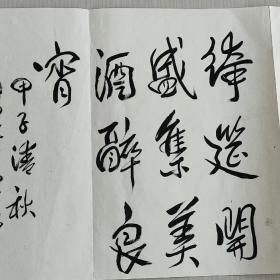 綺筵開
盛集美
酒醉良
宵
甲子清秋